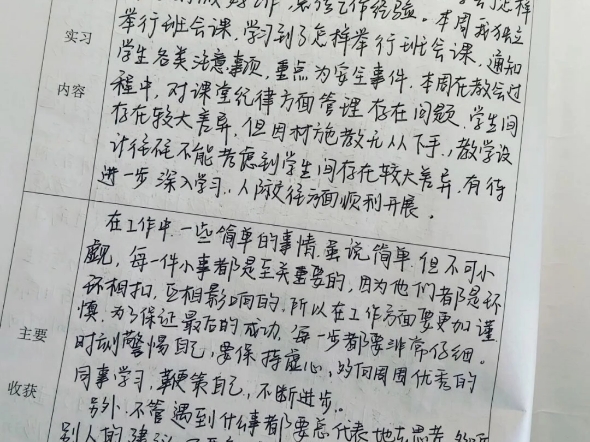 怎样
工作经验。本周我独立
举行班会课，学习到了怎样举行班会课，通知
学生各类注意事项，重点为安全事件。本周在教会过
程中，对课堂纪律方面管理存在问题。学生间
存在较大差异，但因材施教无从下手，教学设
计往往不能考虑到学生间存在较大差异，有待
进一步深入学习。人际交往方面顺利开展。
实习
内容
在工作中，一些简单的事情，虽说简单，但不可小
觑，每一件小事都是至关重要的，因为他们都是环
环相扣，互相影响的，所以在工作方面要更加谨
慎，为了保证最后的成功，每一步都要非常仔细。
时刻警惕自己，要保持虚心，多向周围优秀的
同事学习，鞭策自己，不断进步。
另外，不管遇到什么事都要
别人的建议
主要
收获